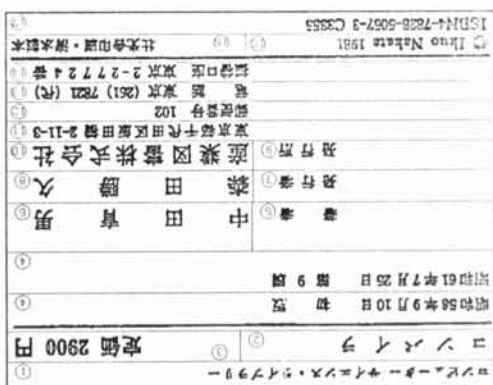 コンピューターサイエンス・ライブラリー ①
コンパイラ ② ③ 定価 2900 円
昭和58年9月10日 初版 ④
昭和61年7月25日 第9刷 ④
著者 ⑤ 中田育男 ⑥
発行者 ⑦ 森田勝久 ⑧
発行所 ⑨ 産業図書株式会社 ⑩
東京都千代田区飯田橋 2-11-3
郵便番号 102
電話 東京 (261) 7821 (代)
振替口座 東京 2-27724 番
© Ikuo Nakata 1981 壮光舎印刷・清水製本
ISBN4-7828-5057-3 C3355